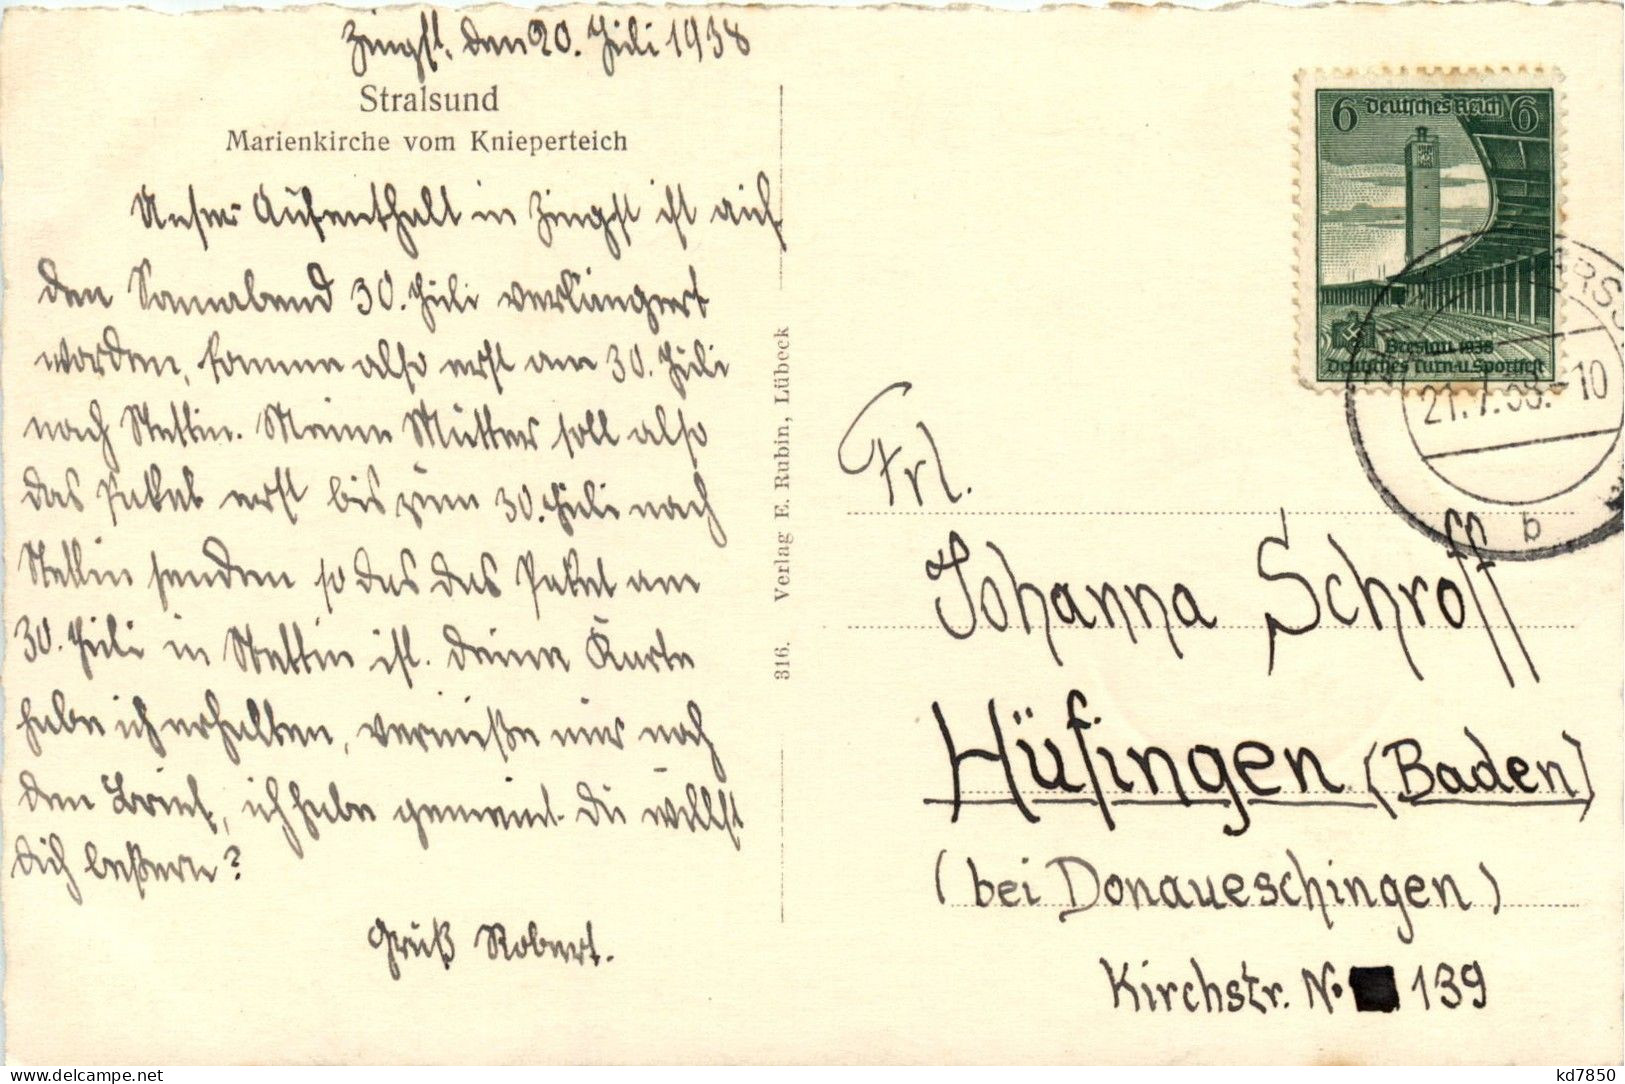 Zingst, den 20. Juli 1938
Stralsund
Marienkirche vom Knieperteich
Unser Aufenthalt in Zingst ist auf
den Sonnabend 30. Juli verlängert
worden, komme also erst am 30. Juli
nach Stettin. Meine Mutter soll also
das Paket erst bis zum 30. Juli nach
Stettin senden so das das Paket am
30. Juli in Stettin ist. Deine Karte
habe ich erhalten, vermiße nur noch
den Brief, ich habe gemeint Du willst
dich beßern?
Gruß Robert.
316. Verlag E. Rubin, Lübeck
6 Deutsches Reich 6
Breslau 1938
Deutsches Turn-u. Sportfest
21.7.38.-10
b
Frl.
Johanna Schroff
Hüfingen (Baden)
(bei Donaueschingen)
Kirchstr. N. 139
kd7850